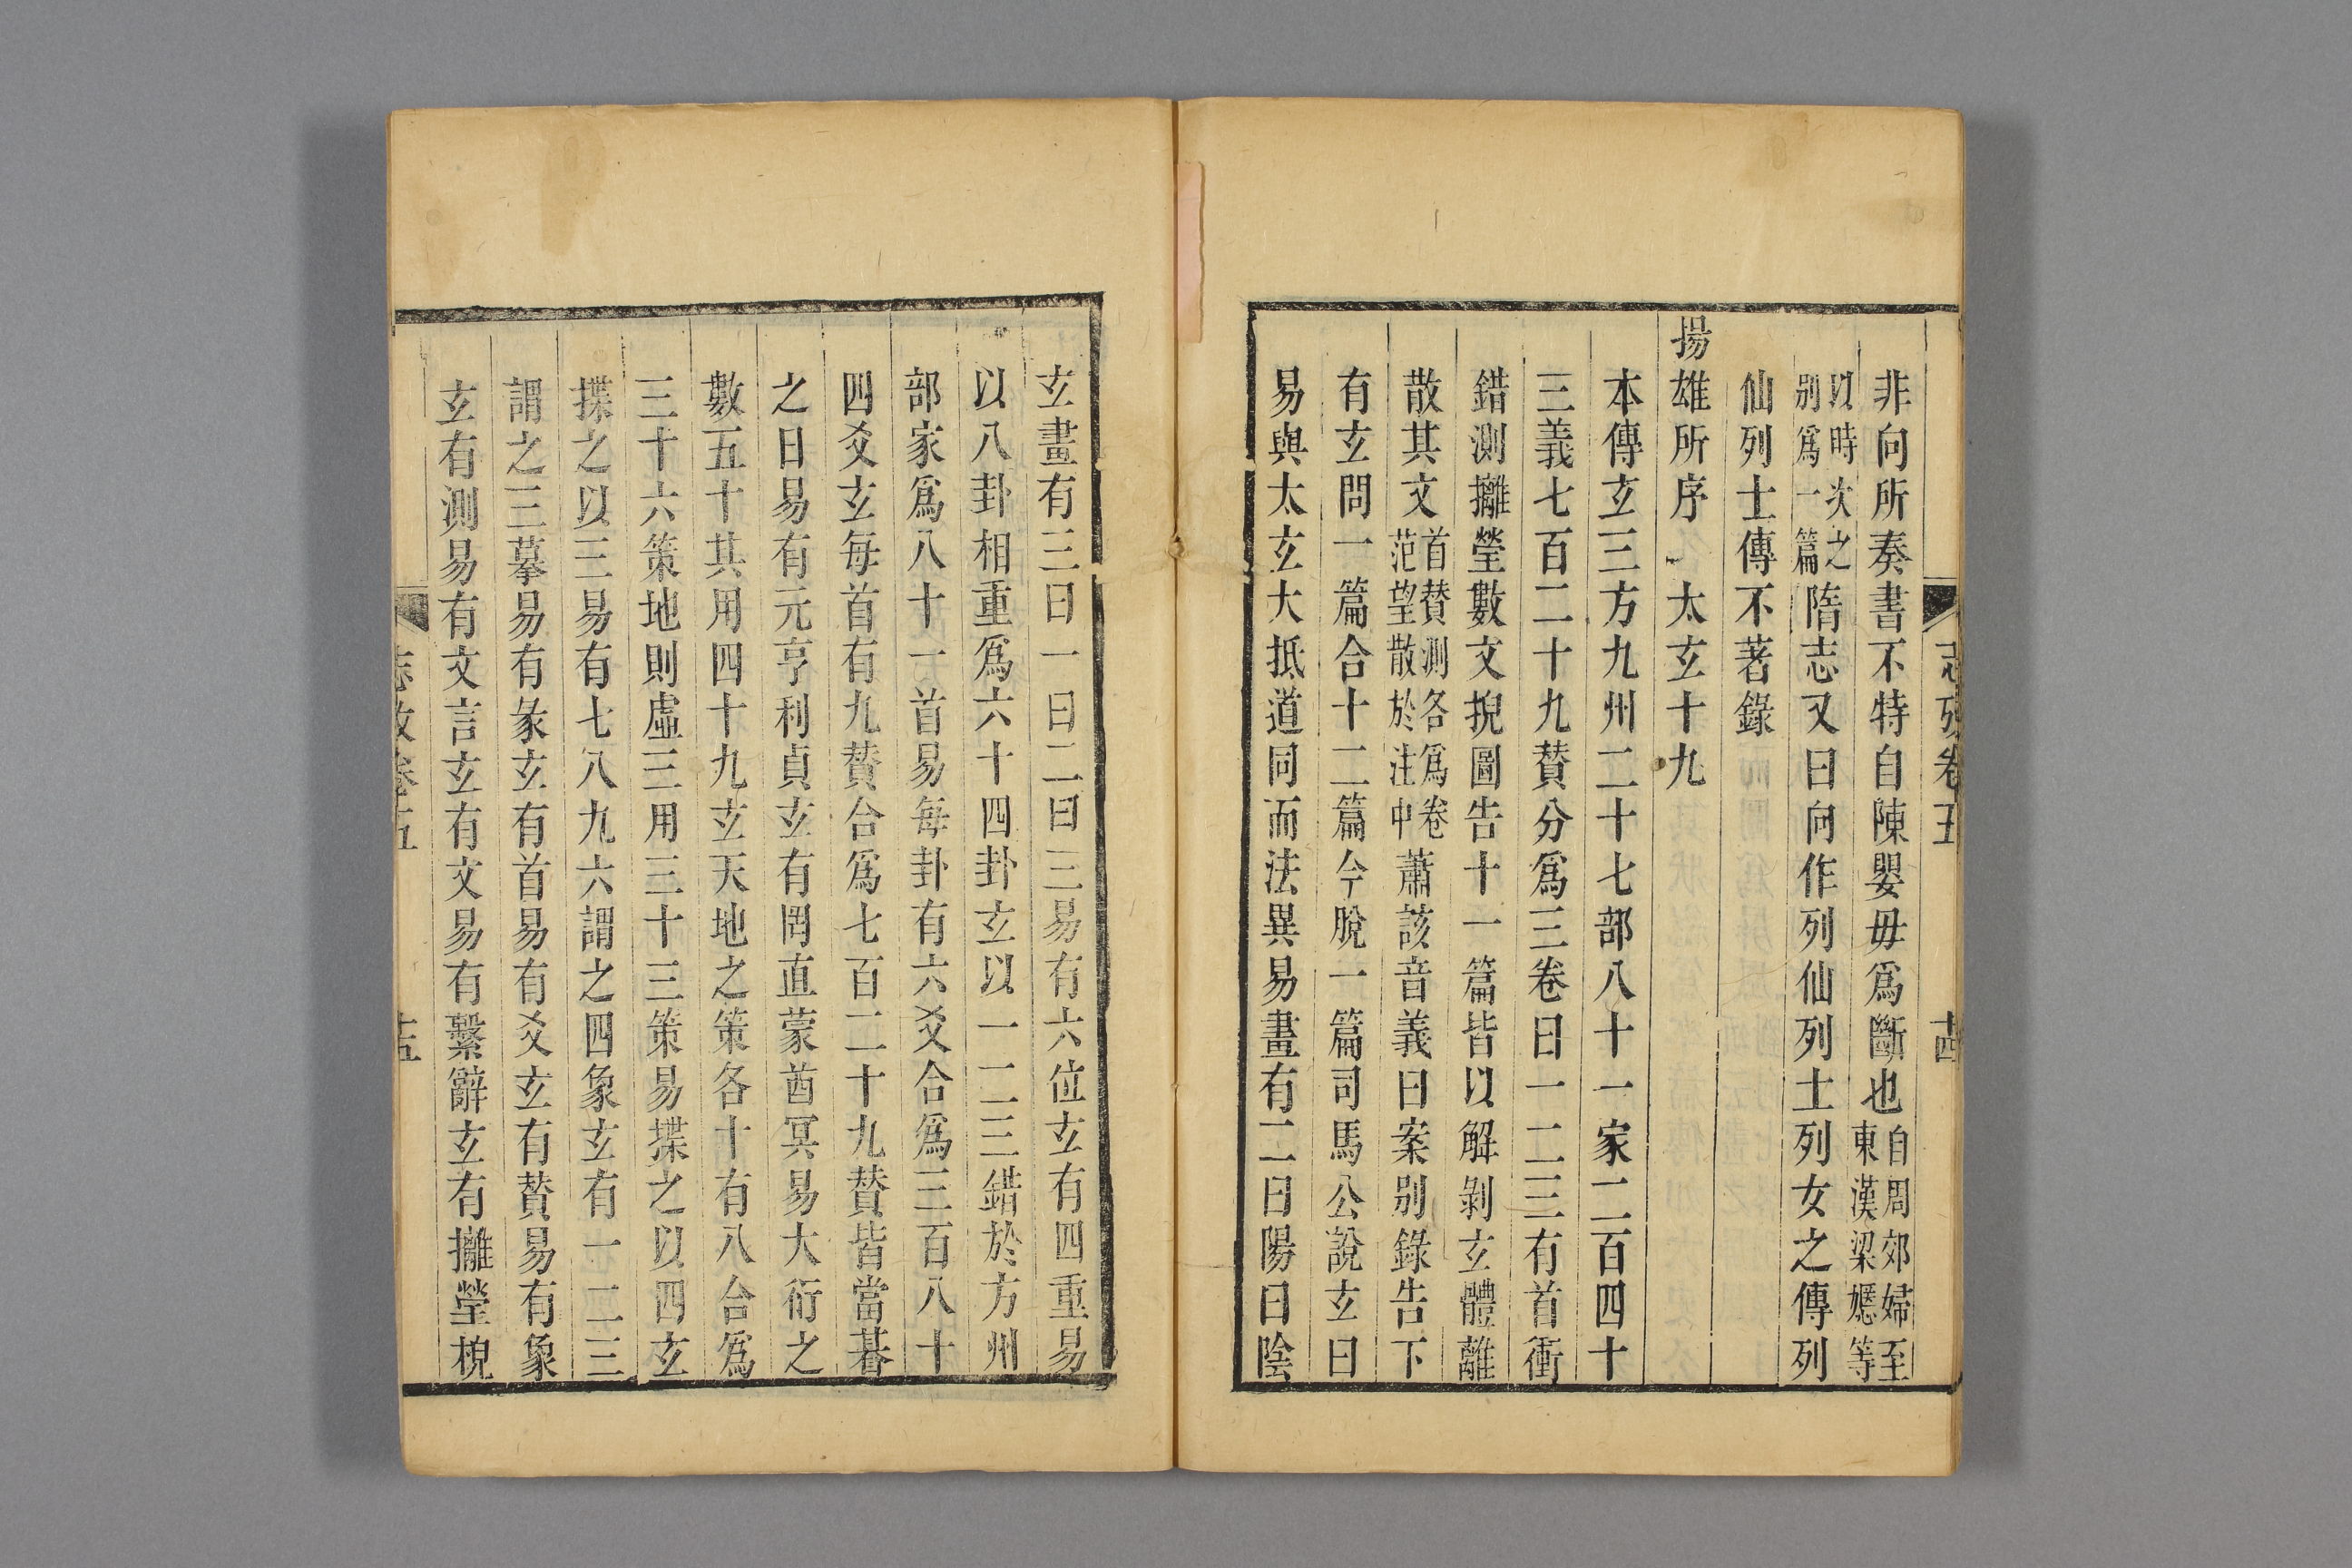 非向所奏書不特自陳嬰毋爲斷也自周郊婦至東漢梁嬺等
以時次之别爲一篇隋志又曰向作列仙列士列女之傳列
仙列士傳不著錄
揚雄所序 太玄十九
本傳玄三方九州二十七部八十一家二百四十
三義七百二十九贊分爲三卷曰一二三有首衝
錯測攡瑩數文掜圖告十一篇皆以解剝玄體離
散其文首贊測各爲卷范望散於注中蕭該音義曰案别錄告下
有玄問一篇合十二篇今脫一篇司馬公說玄曰
易與太玄大抵道同而法異易畫有二曰陽曰陰
玄畫有三曰一曰二曰三易有六位玄有四重易
以八卦相重爲六十四卦玄以一二三錯於方州
部家爲八十一首易每卦有六爻合爲三百八十
四爻玄每首有九贊合爲七百二十九贊皆當朞
之日易有元亨利貞玄有罔直蒙酋冥易大衍之
數五十其用四十九玄天地之策各十有八合爲
三十六策地則虛三用三十三策易揲之以四玄
揲之以三易有七八九六謂之四象玄有一二三
謂之三摹易有彖玄有首易有爻玄有贊易有象
玄有測易有文言玄有文易有繫辭玄有攡瑩棿
志攷卷五 十五